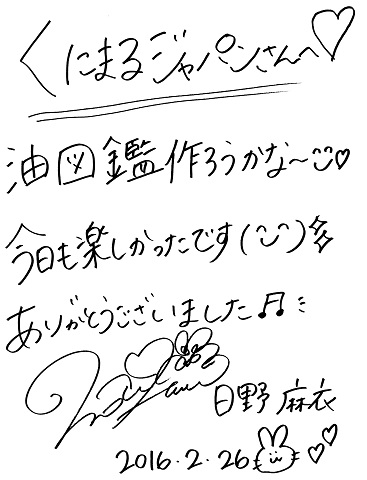 くにまるジャパンさんへ♡
油図鑑作ろうかな〜☺♡
今日も楽しかったです(^‿^)
ありがとうございました♫
日野 麻衣
2016.2.26